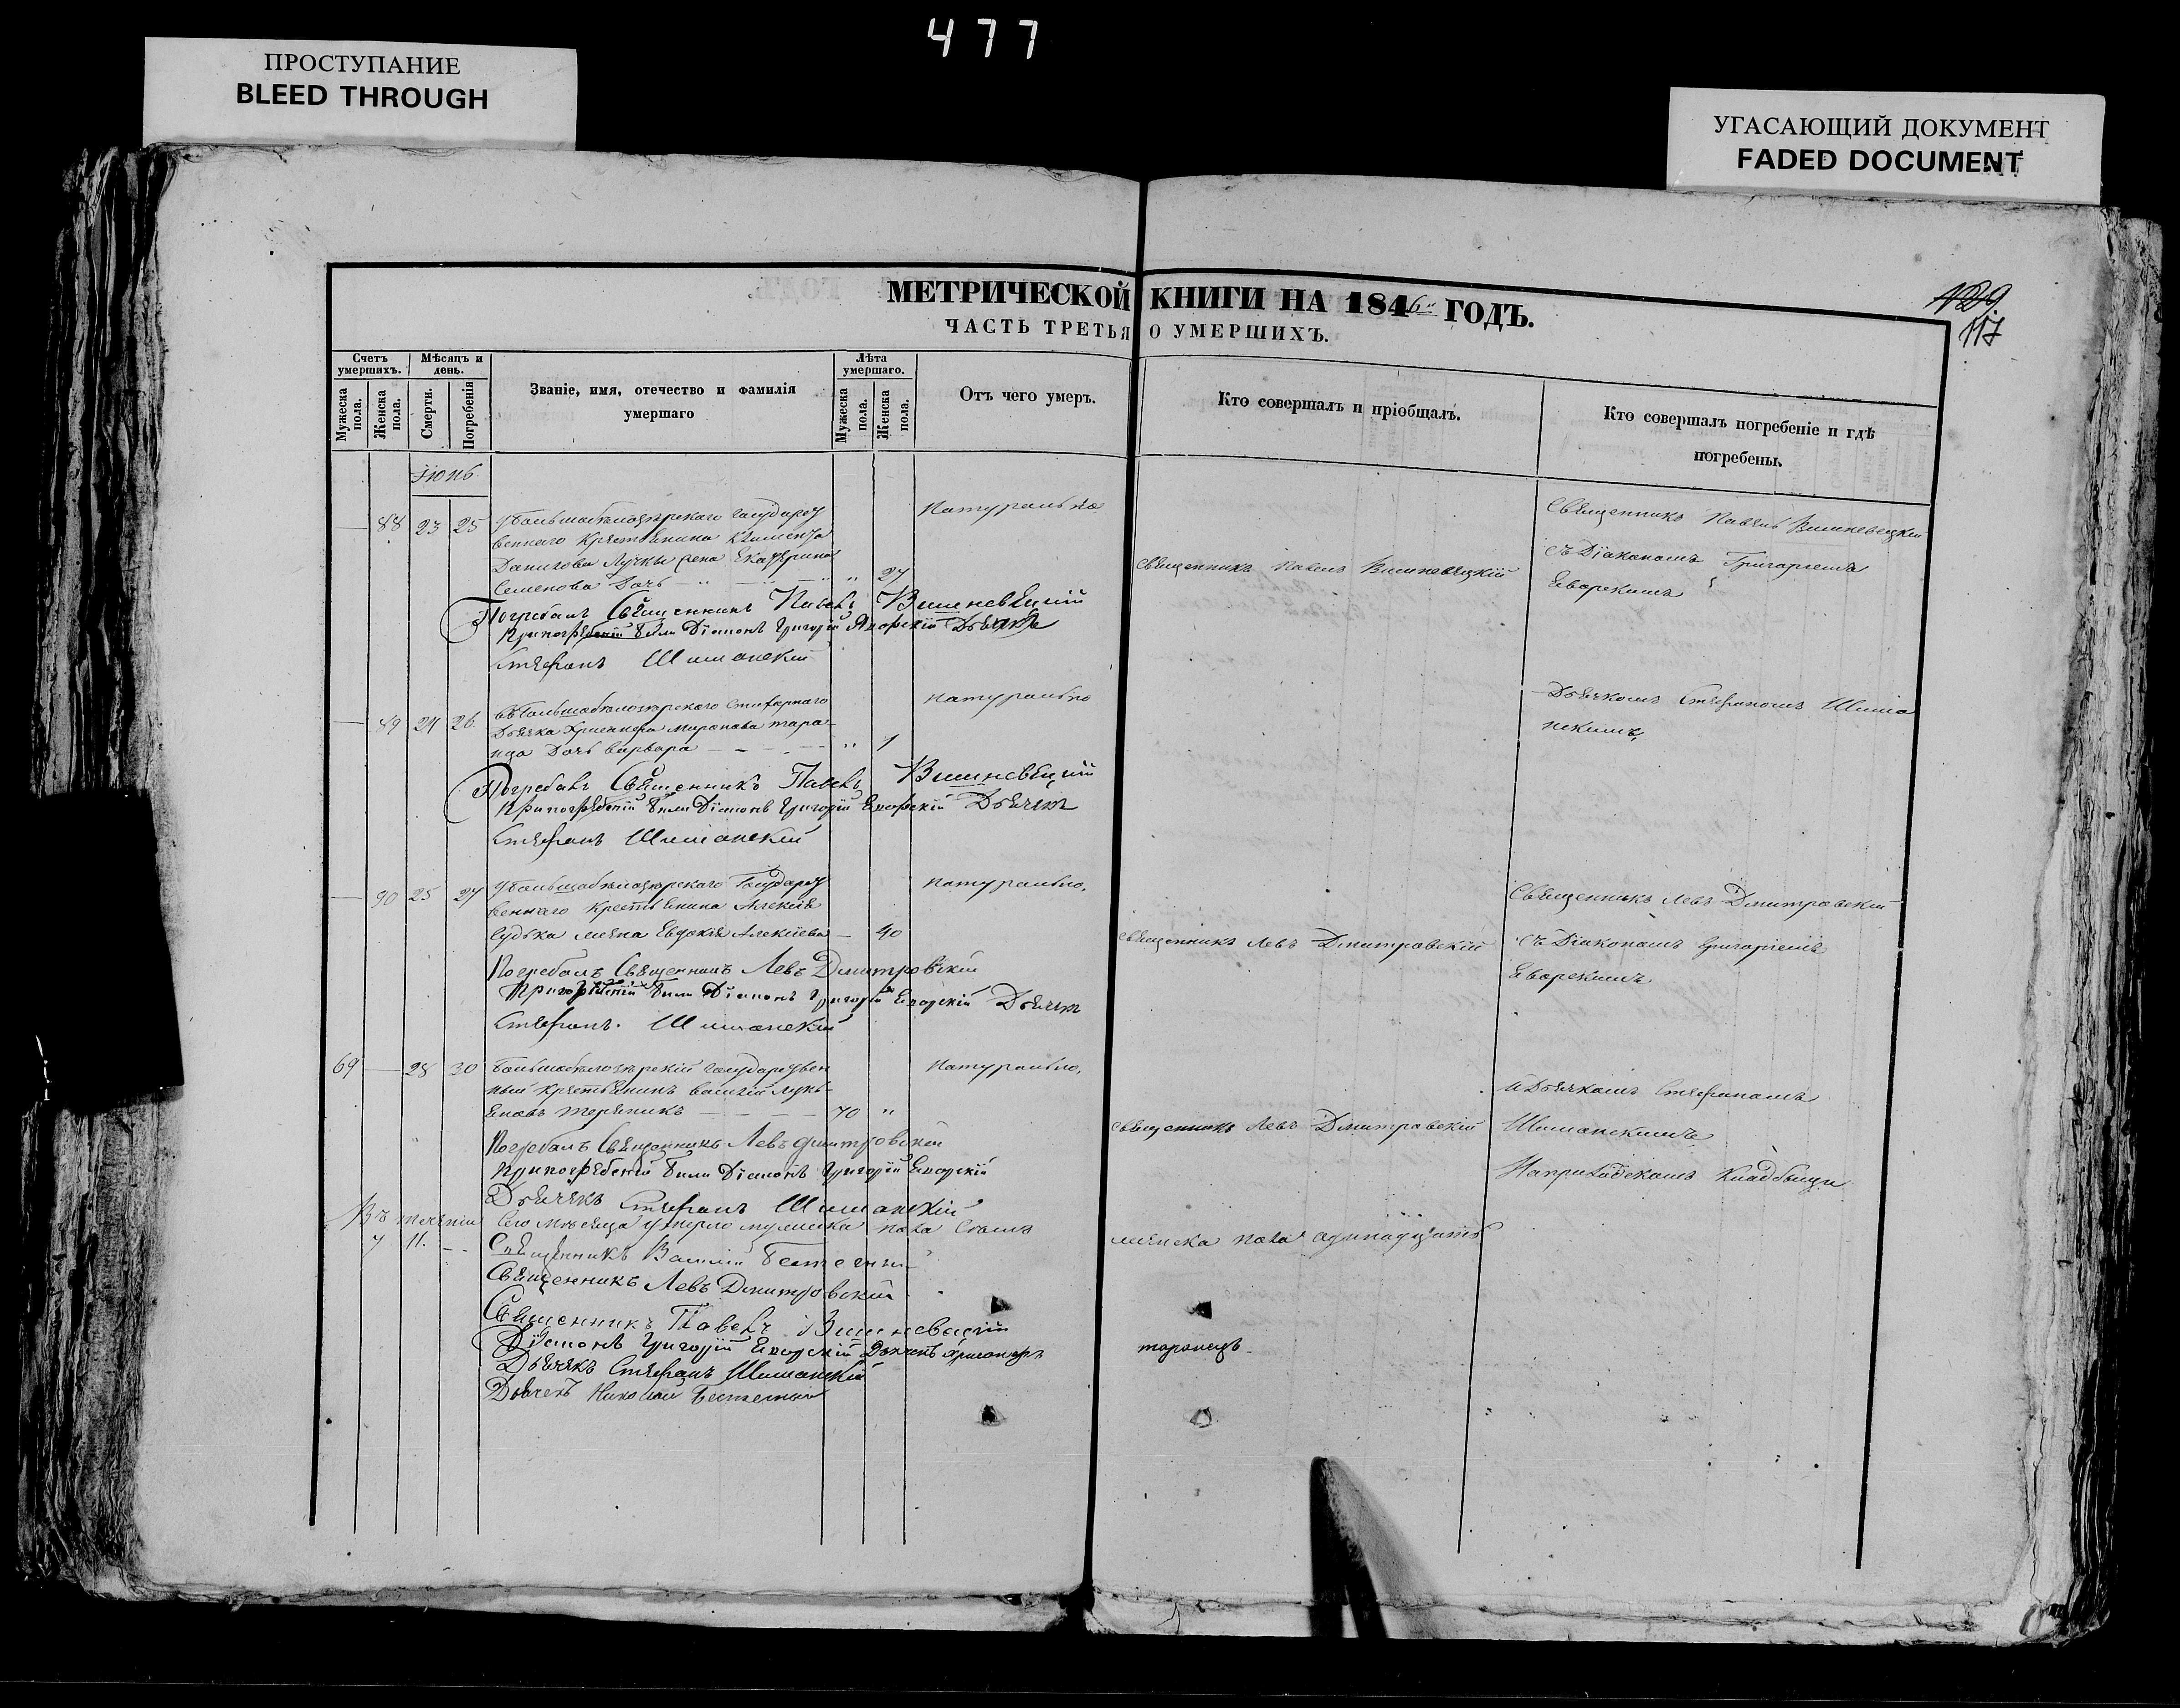 477
ПРОСТУПАНИЕ
BLEED THROUGH
УГАСАЮЩИЙ ДОКУМЕНТ
FADED DOCUMENT
129
117
МЕТРИЧЕСКОЙ КНИГИ НА 1846 ГОДЪ.
ЧАСТЬ ТРЕТЬЯ О УМЕРШИХЪ.
Счетъ умершихъ.
Мѣсяцъ и день.
Званіе, имя, отечество и фамилія умершаго
Лѣта умершаго.
Отъ чего умеръ.
Кто совершалъ и пріобщалъ.
Кто совершалъ погребеніе и гдѣ погребены.
Мужеска пола.
Женска пола.
Смерти.
Погребенія
Мужеска пола.
Женска пола.
Іюнь
88 23 25
веннаго Крестьянина Климента
Данилова жена Екатерина
Семенова Дочь 27
Натурально
Священникъ Павелъ Вишневецкій
Священникъ Павелъ Вишневецкій
съ Діакономъ Григоріемъ
Погребалъ Священникъ Павелъ Вишневецкій
При погребеніи были Діаконъ Григорій Дьячекъ
Стефанъ Шиманскій
89 24 26
Дьячка
Дочь Варвара 1
Натурально
Дьячкомъ Стефаномъ Шима
нскимъ,
Погребалъ Священникъ Павелъ Вишневецкій
При погребеніи были Діаконъ Григорій Дьячекъ
Стефанъ Шиманскій
90 25 27
веннаго Крестьянина Алексія
жена Евдокія Алексіева 40
Натурально,
Священникъ Левъ Дмитровскій
Священникъ Левъ Дмитровскій
съ Діакономъ Григоріемъ
Погребалъ Священникъ Левъ Дмитровскій
При погребеніи были Діаконъ Григорій Дьячекъ
Стефанъ Шиманскій
69 28 30
ный Крестьянинъ Василій
70
Натурально,
Священникъ Левъ Дмитровскій
и Дьячкомъ Стефаномъ
Шиманскимъ
На приходскомъ Кладбищи
Погребалъ Священникъ Левъ Дмитровскій
При погребеніи были Діаконъ Григорій
Дьячекъ Стефанъ Шиманскій
Въ теченіи сего мѣсяца умерло мужеска пола семь женска пола одинадцать
7 11.
Священникъ Василій
Священникъ Левъ Дмитровскій
Священникъ Павелъ Вишневецкій
Діаконъ Григорій Дьячекъ
Дьячекъ Стефанъ Шиманскій
Дьячекъ Николай